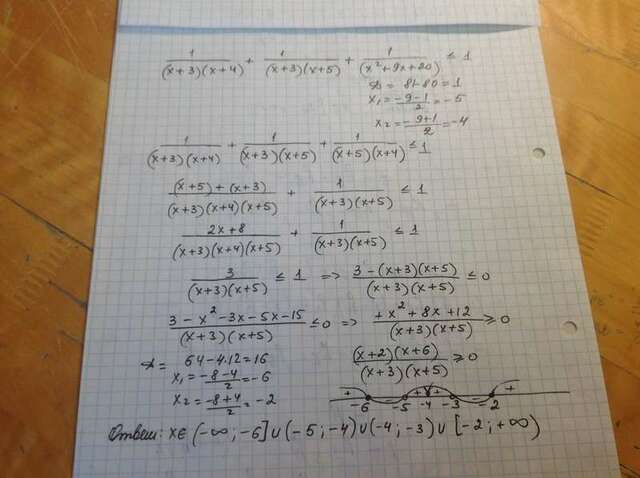 1/((x+3)(x+4)) + 1/((x+3)(x+5)) + 1/(x²+9x+20) ≤ 1
D = 81-80 = 1
x₁ = (-9-1)/2 = -5
x₂ = (-9+1)/2 = -4
1/((x+3)(x+4)) + 1/((x+3)(x+5)) + 1/((x+5)(x+4)) ≤ 1
((x+5)+(x+3))/((x+3)(x+4)(x+5)) + 1/((x+3)(x+5)) ≤ 1
(2x+8)/((x+3)(x+4)(x+5)) + 1/((x+3)(x+5)) ≤ 1
3/((x+3)(x+5)) ≤ 1 => (3-(x+3)(x+5))/((x+3)(x+5)) ≤ 0
(3-x²-3x-5x-15)/((x+3)(x+5)) ≤ 0 => (+x²+8x+12)/((x+3)(x+5)) ≥ 0
D = 64-4·12 = 16
x₁ = (-8-4)/2 = -6
x₂ = (-8+4)/2 = -2
((x+2)(x+6))/((x+3)(x+5)) ≥ 0
+ - + + - +
-6 -5 -4 -3 -2
Ответ: x∈(-∞;-6]∪(-5;-4)∪(-4;-3)∪[-2;+∞)